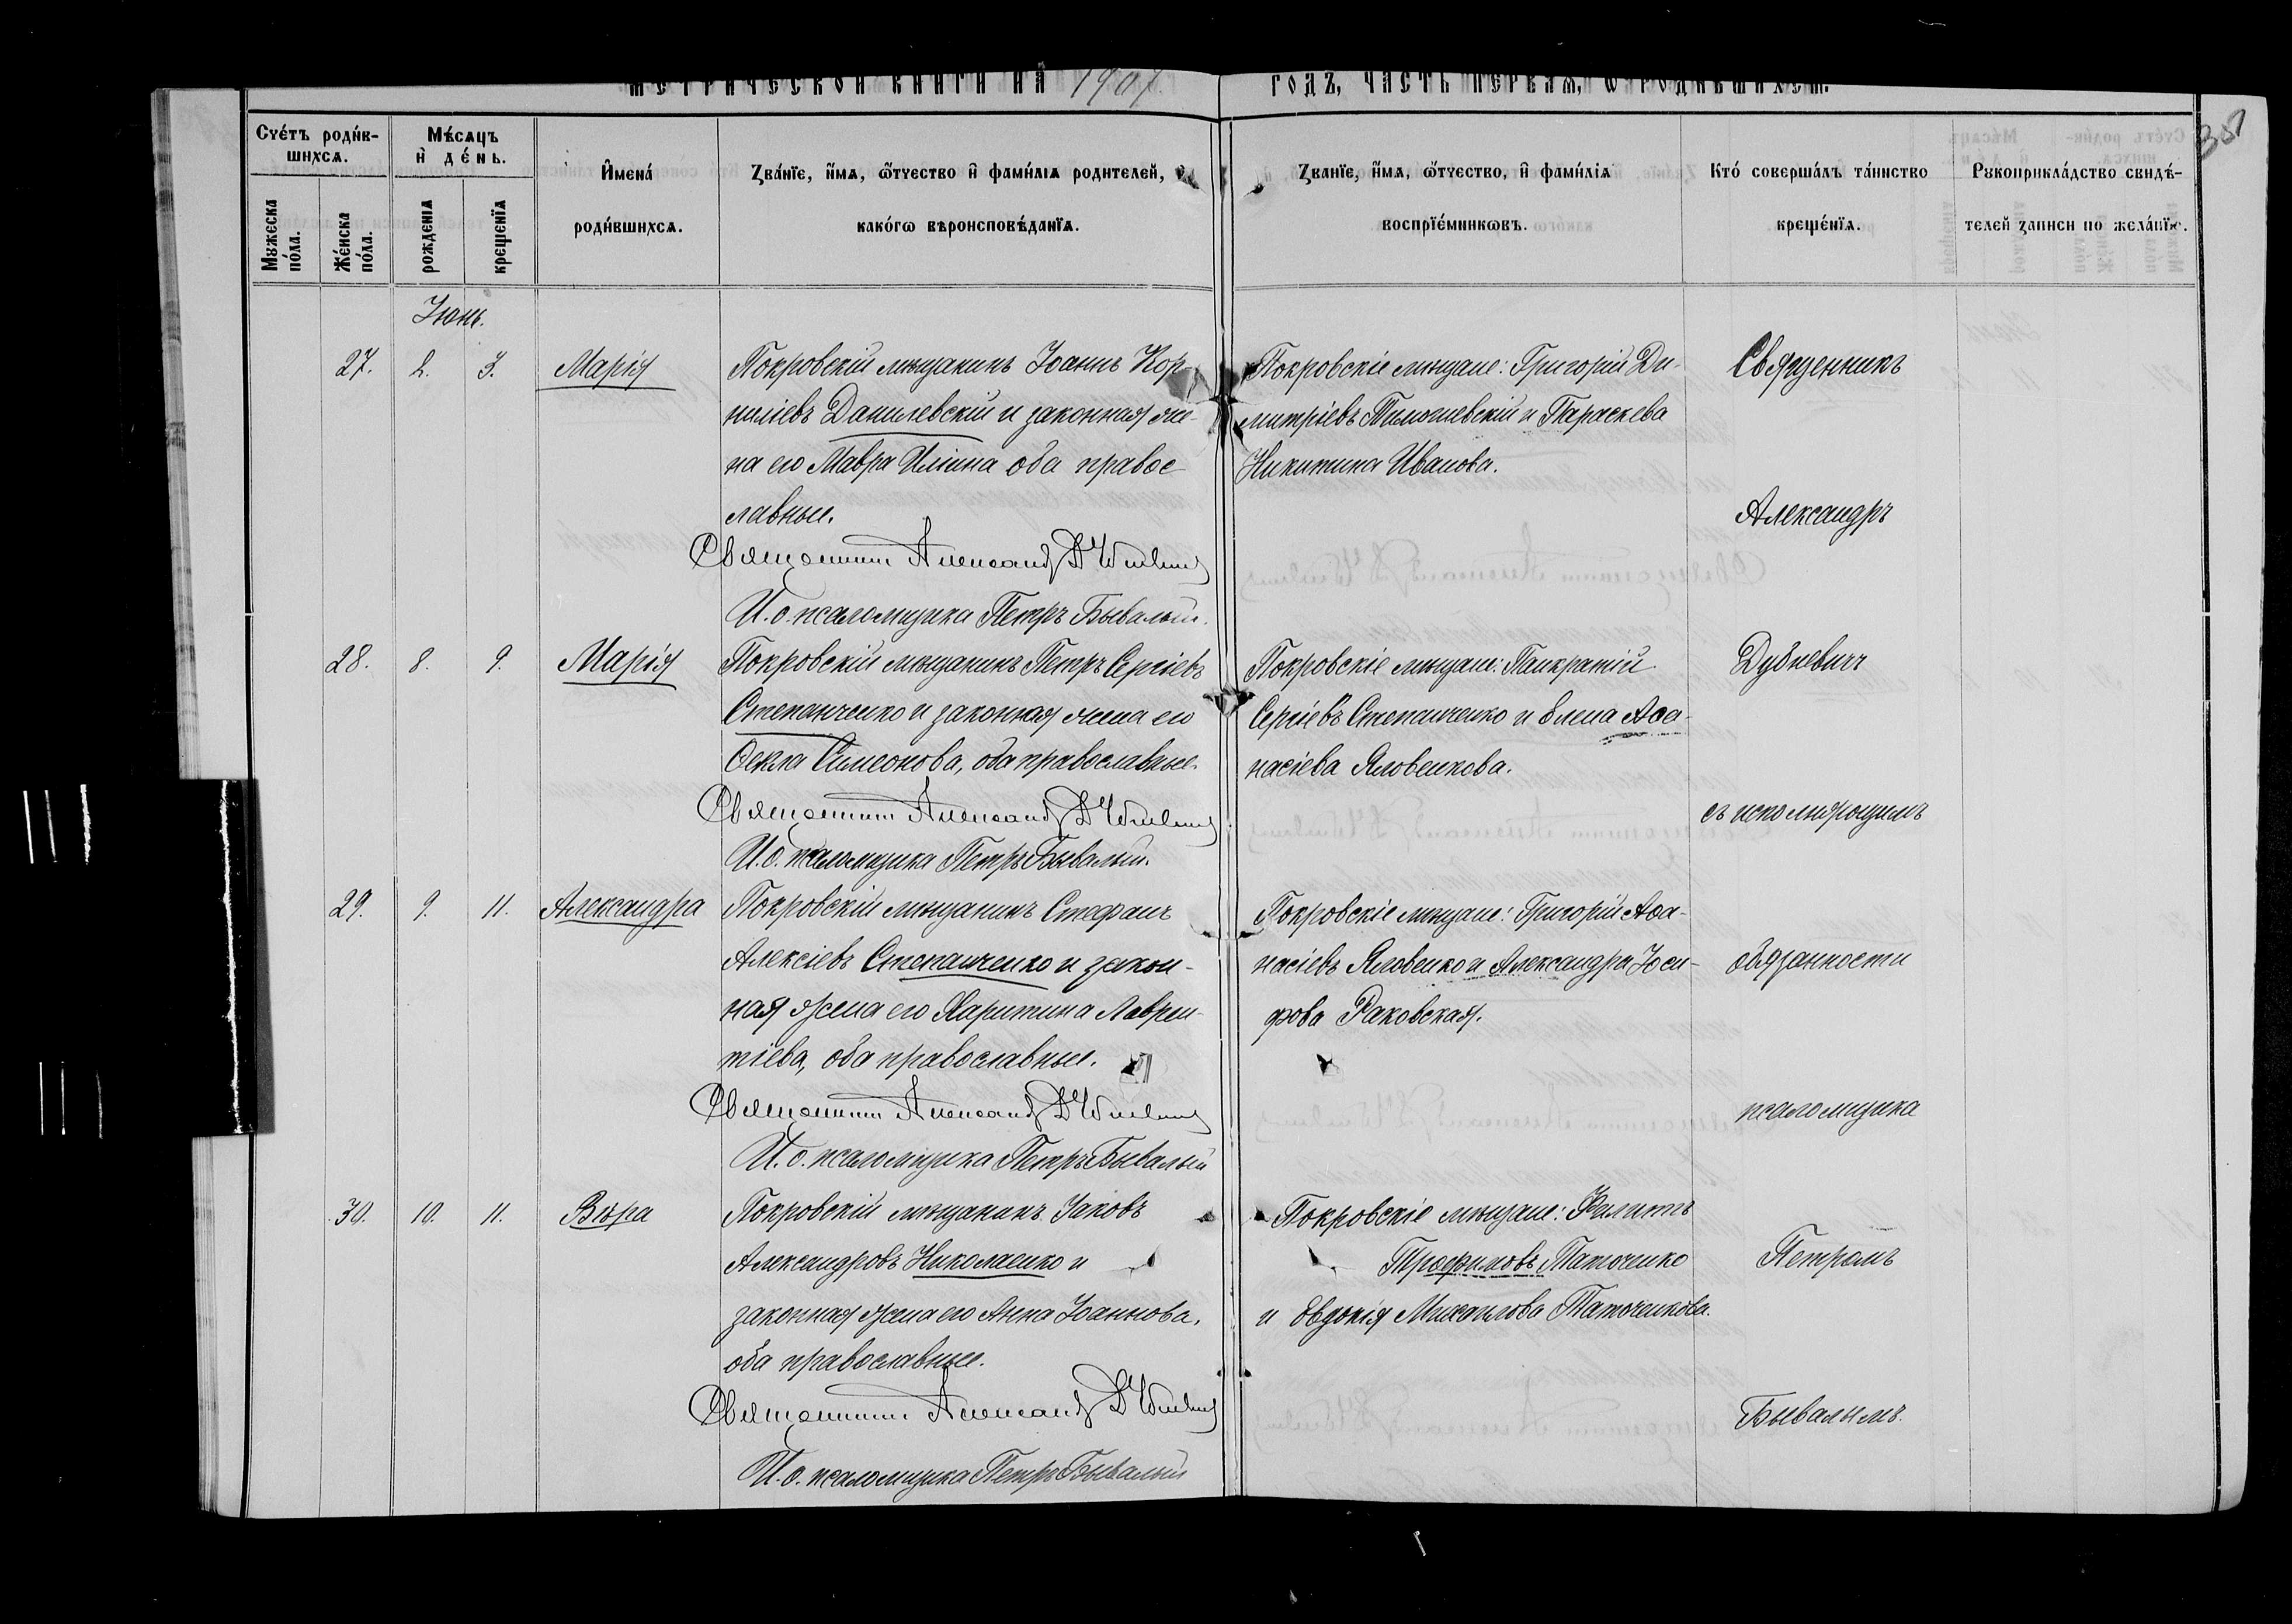 МЕТРИЧЕСКОЙ КНИГИ НА 1907
ГОДЪ, ЧАСТЬ ПЕРВАЯ, Ѡ РОДИВШИХСЯ.
Сче́тъ роди́в-
шихсѧ.
Мѣ́сѧцъ
и҆ де́нь.
Мꙋжеска
по́ла.
Же́нска
по́ла.
рожденїѧ
крещенїѧ
И҆мена́
роди́вшихсѧ.
Зва́нїе, и҆́мѧ, ѡ҆́тчество и҆ фами́лїѧ родителей, и҆
како́гѡ вѣроисповѣ́данїѧ.
Званїе, и҆́мѧ, ѡ҆́тчество, и҆ фами́лїѧ
воспрїе́мникѡвъ.
Кто́ соверша́лъ та́инство
креще́нїѧ.
Рꙋкоприкла́дство свидѣ́-
телей записи по жела́нїю.
Іюнь.
27. 2. 3. Марія
Покровскій мѣщанинъ Іоаннъ Кор-
ниліевъ Данилевскій и законная же-
на его Мавра Иліина оба правос
лавные.
Священникъ Александръ Дубневичъ
И. о. псаломщика Петръ Бывалый.
Покровскіе мѣщане: Григорій Ди-
митріевъ Тимошевскій и Параскева
Никитина Иванова.
Священникъ
Александръ
28. 8. 9. Марія
Покровскій мѣщанинъ Петръ Сергіевъ
Степанченко и законная жена его
Ѳекла Симеонова, оба православные.
Священникъ Александръ Дубневичъ
И. о. псаломщика Петръ Бывалый.
Покровскіе мѣщане: Панкратій
Сергіевъ Степанченко и Елена Аѳа-
насіева Яловенкова.
Дубневичъ
съ исполняющимъ
29. 9. 11. Александра
Покровскій мѣщанинъ Стефанъ
Алексіевъ Степанченко и закон-
ная жена его Харитина Лаврен-
тіева, оба православные.
Священникъ Александръ Дубневичъ
И. о. псаломщика Петръ Бывалый
Покровскіе мѣщане: Григорій Аѳа-
насіевъ Яловенко и Александра Іоси-
фова Раковская.
обязанности
псаломщика
30. 10. 11. Вѣра
Покровскій мѣщанинъ Іаковъ
Александровъ Николаенко и
законная жена его Анна Іоаннова,
оба православные.
Священникъ Александръ Дубневичъ
И. о. псаломщика Петръ Бывалый
Покровскіе мѣщане: Филиппъ
Трофимовъ Таточенко
и Евдокія Михаилова Таточенкова.
Петромъ
Бывалымъ.